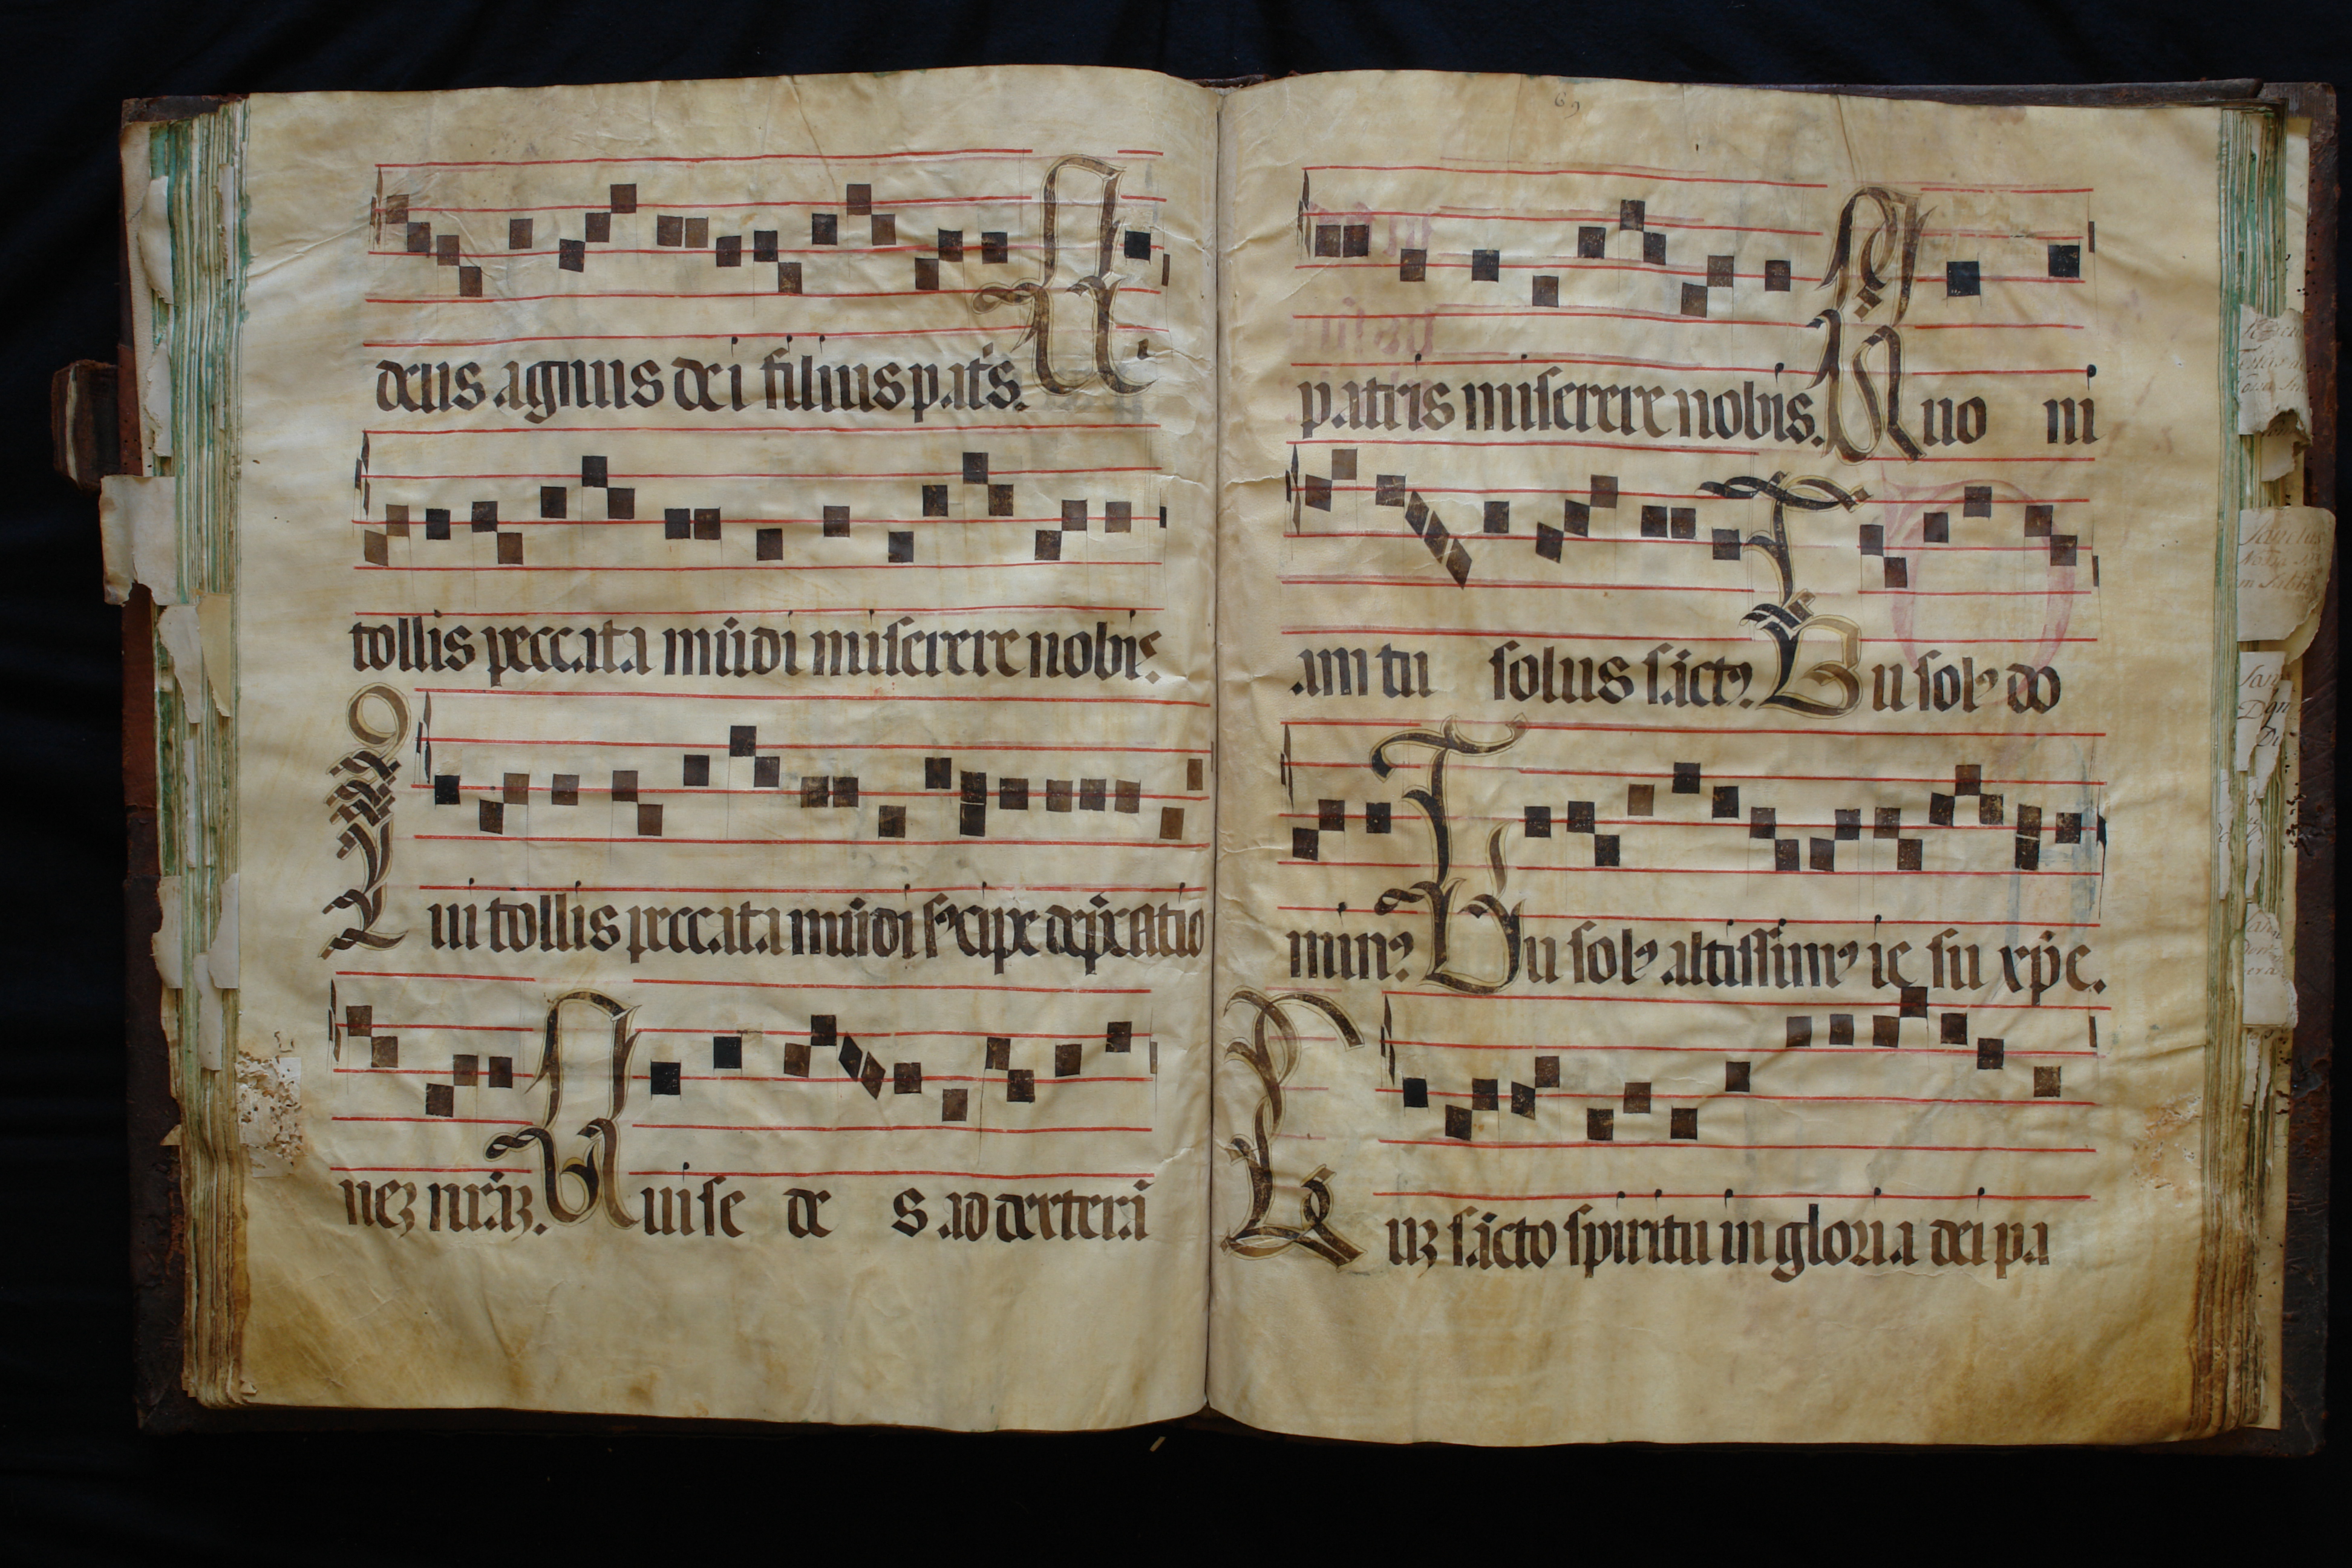 deus agnus dei filius patˀs. Qui
tollis peccata mūdi miserere nobis.
Qui tollis peccata mūdi suscipe dep̄catio
neʒ nr̄aʒ. Qui se de s ad dexterā
69
patris miserere nobis. Quo ni
am tu solus sāctꝰ. Tu solꝰ do
minꝰ. Tu solꝰ altissimꝰ ie su xp̄e.
Cuʒ sācto spiritu in gloria dei pa